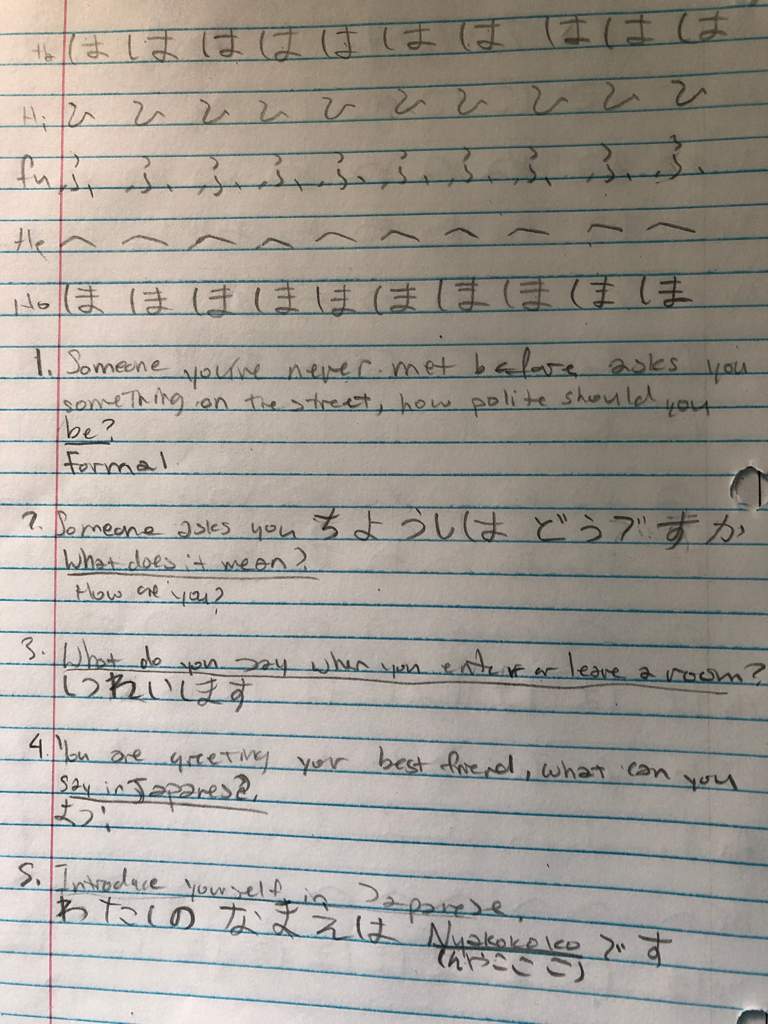 Ha はははははははははは
Hi ひひひひひひひひひひ
fu ふふふふふふふふふふ
He へへへへへへへへへへ
Ho ほほほほほほほほほほ
1. Someone you've never met before asks you
something on the street, how polite should you
be?
Formal
2. Someone asks you ちようしは どうですか
What does it mean?
How are you?
3. What do you say when you enter or leave a room?
しつれいします
4. You are greeting your best friend, what can you
say in Japanese?
5. Introduce yourself in Japanese.
わたしの なまえは Nyakokoko です